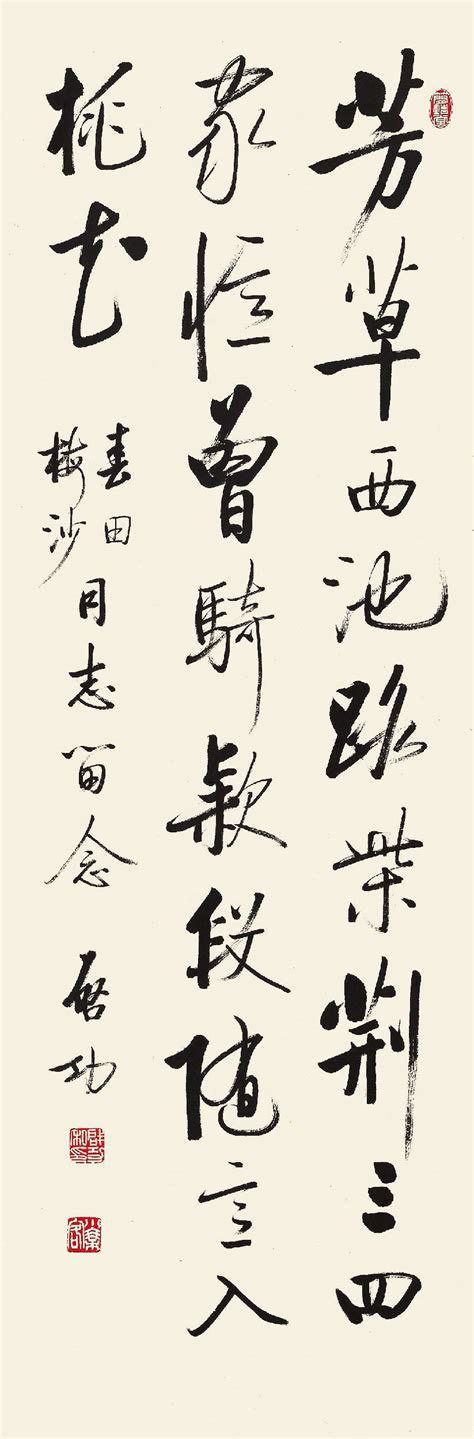 芳草西池路柴荆三四
家憶曾騎款段随意入
桃花
春田
梅沙
同志留念 启功